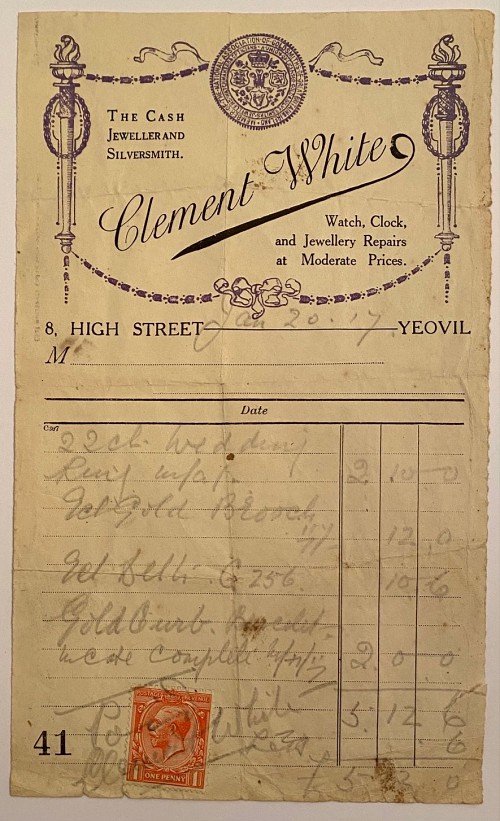 THE CASH
JEWELLER AND
SILVERSMITH.
Clement White
Watch, Clock,
and Jewellery Repairs
at Moderate Prices.
8, HIGH STREET Jan 20.17 YEOVIL
M
Date
22ct. Wedding
Ring 2 10 0
9ct Gold Brooch
12 0
9ct 256 10 6
Gold Curb Bracelet
in case complete 2 0 0
White 5 12 6
Less 6
£5 12 0
41
POSTAGE REVENUE
1 ONE PENNY 1